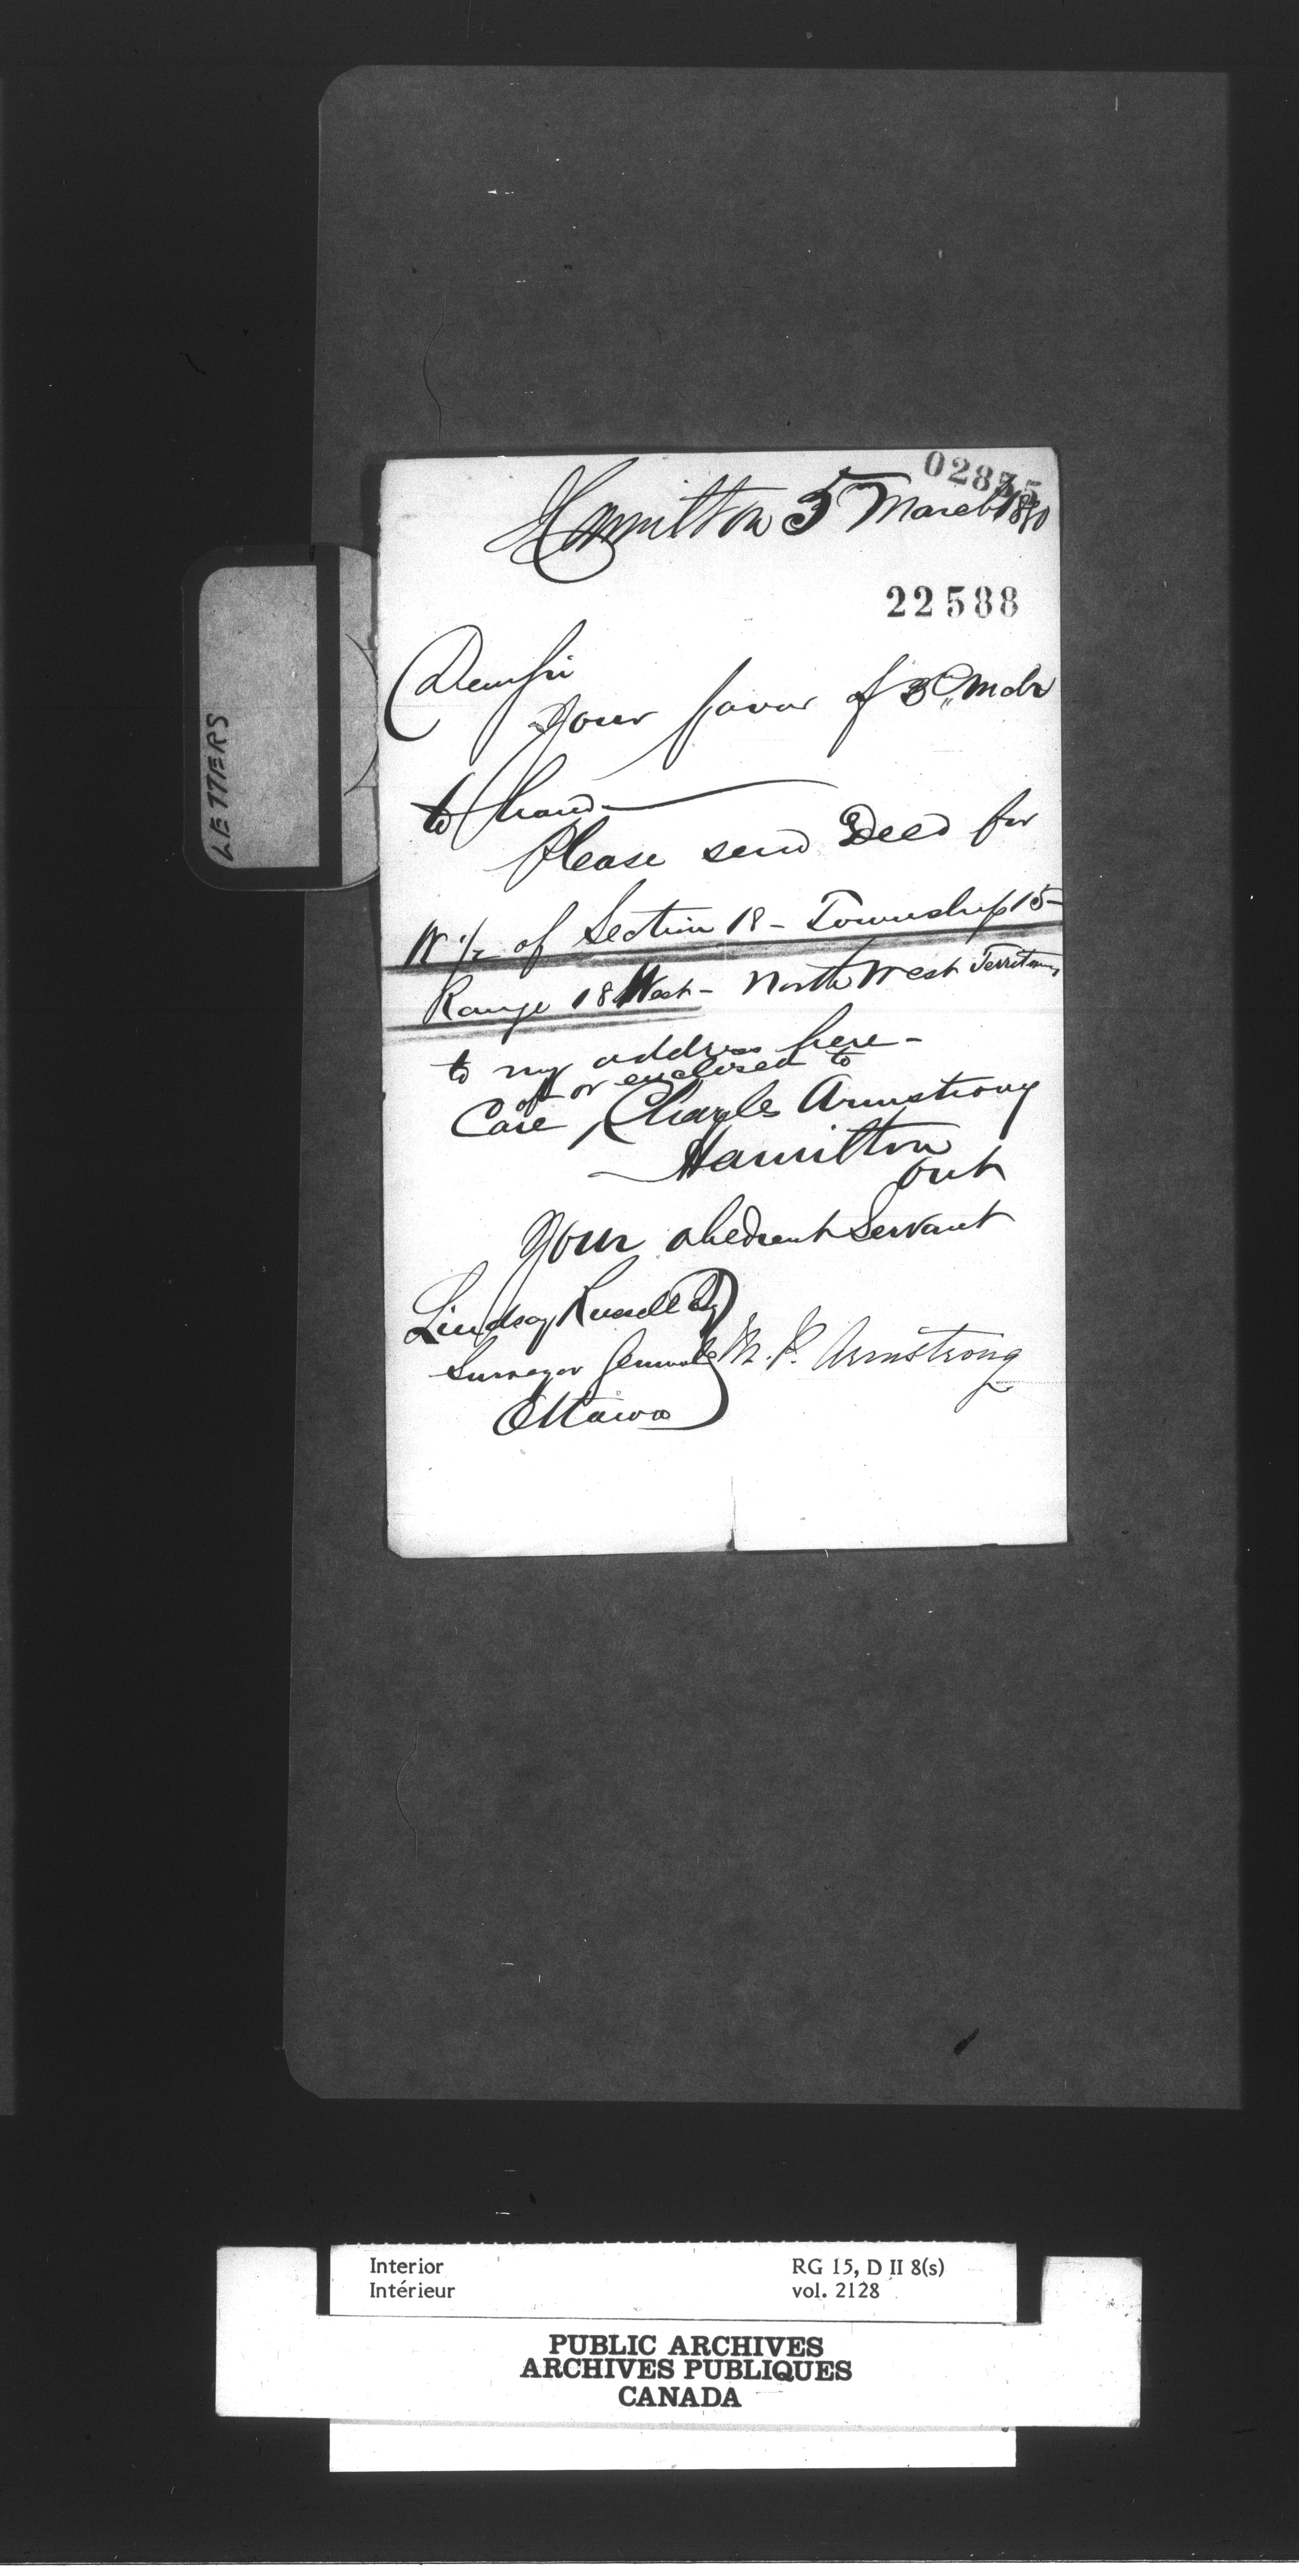 02835
Hamilton 5 March 1880
22588
Dear Sir
Your favor of 3d Mch
to hand
Please send Deed for
W 1/2 of Section 18 - Township 15 -
Range 18 West - North West Territory
to my address here -
or enclosed to
Care of Charles Armstrong
Hamilton
Ont
Your obedient Servant
Lindsay Russell Esq
Surveyor General
M. P. Armstrong
Ottawa
LETTERS
Interior
Intérieur
RG 15, D II 8(s)
vol. 2128
PUBLIC ARCHIVES
ARCHIVES PUBLIQUES
CANADA